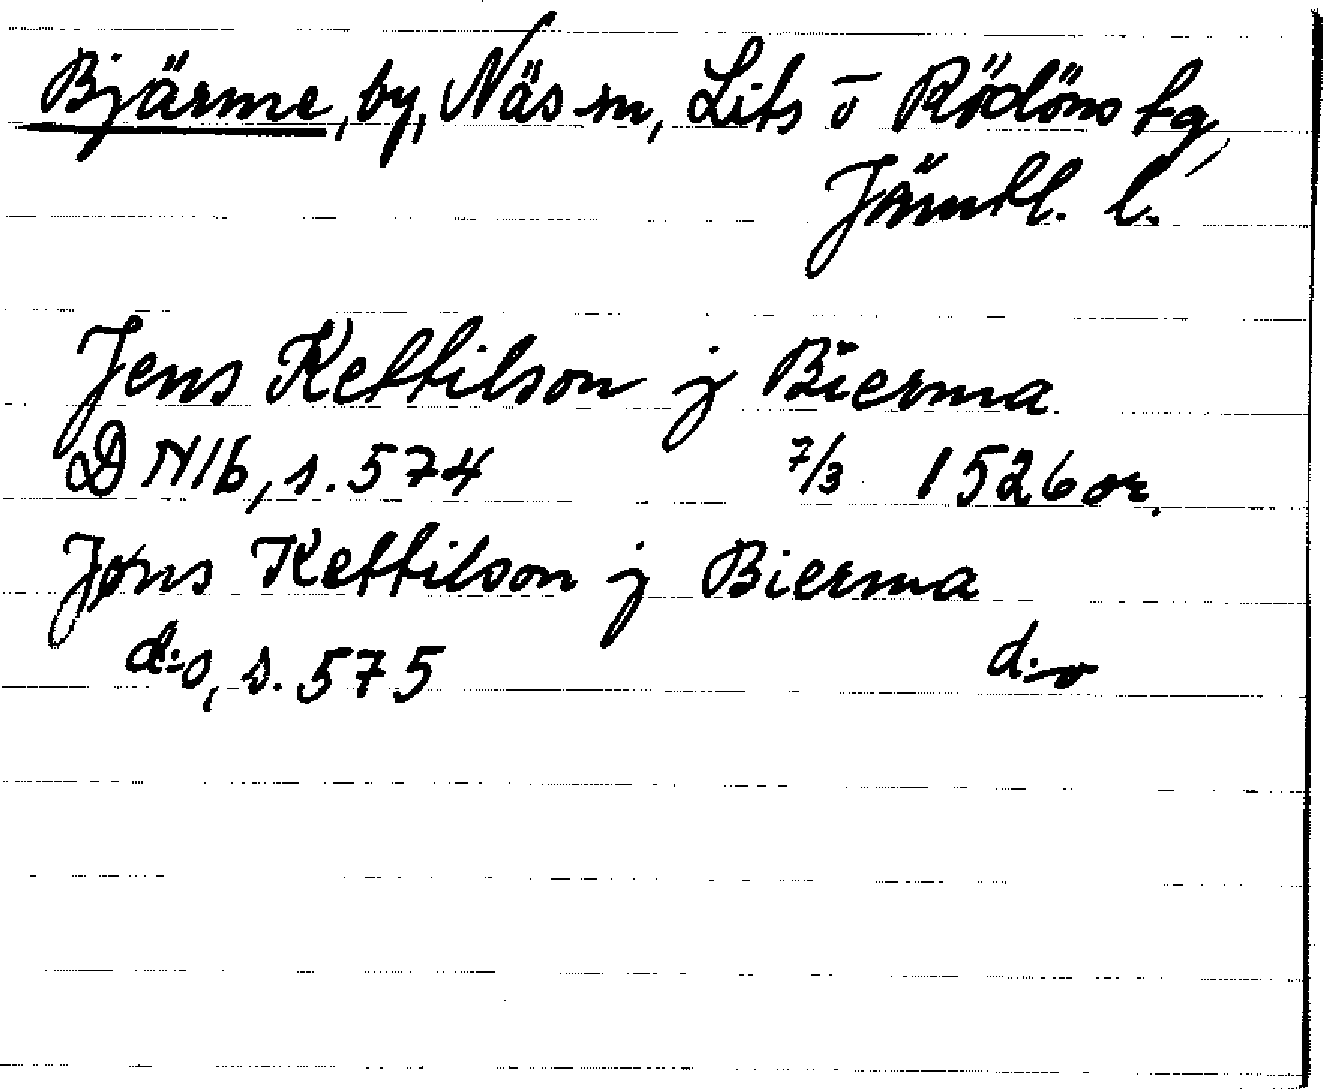 Bjärme, by, Näs sn, Lits o Rödöns tg,
Jämtl. l.
Jens Kettilson j Bierma
DN 16, s. 574 7/3 1526 or.
Jøns Kettilson j Bierma
d:o, s. 575 d:o